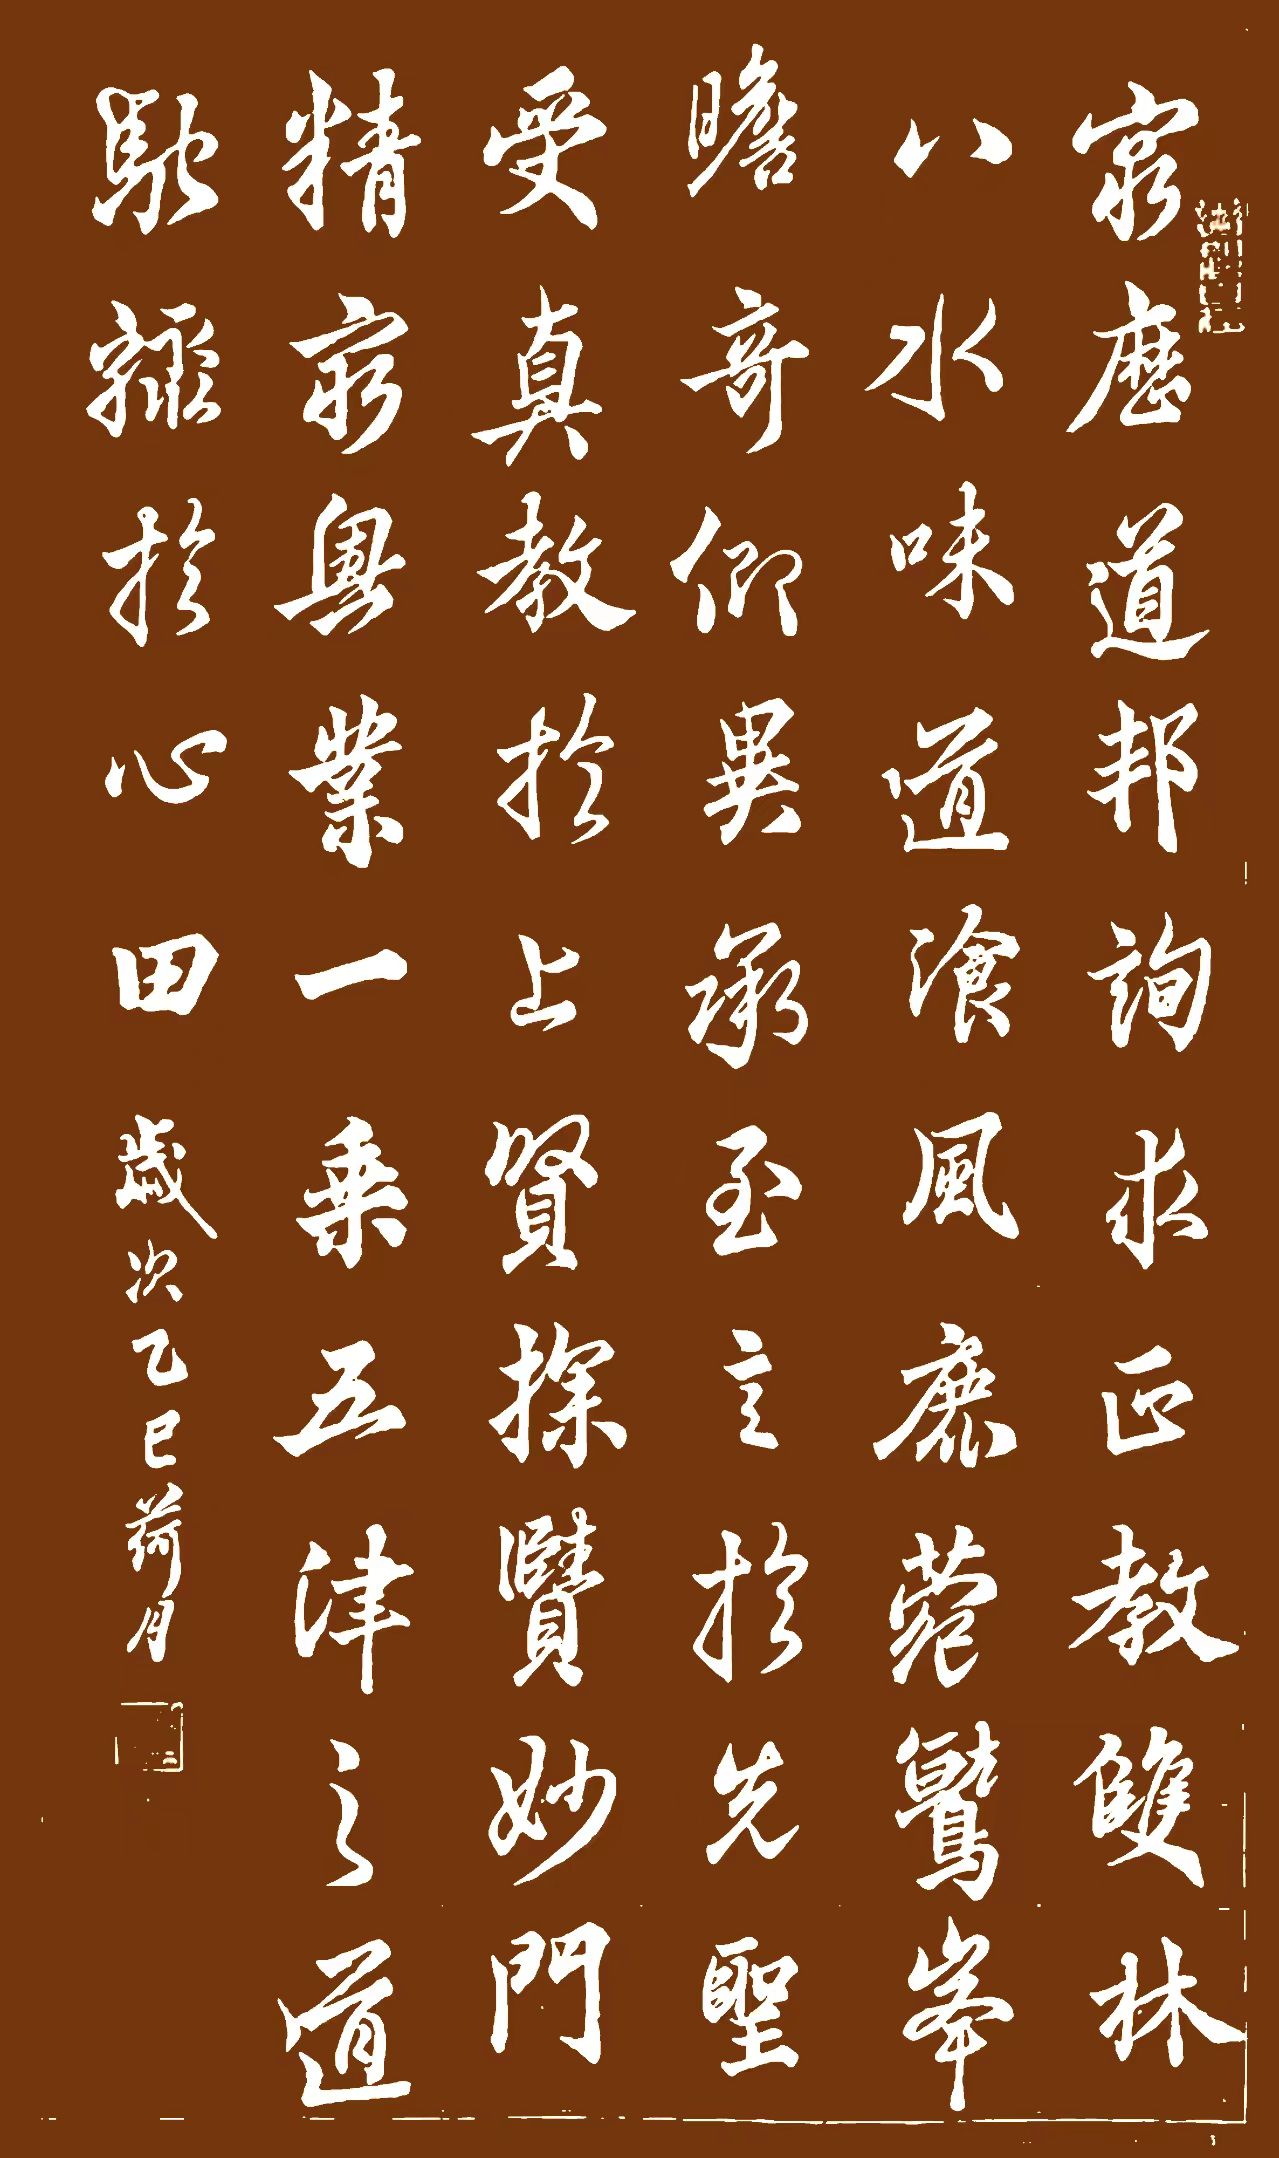 窮歷道邦詢求正教雙林
八水味道飡風鹿菀鷲峯
瞻奇仰異承至言於先聖
受真教於上賢探賾妙門
精窮奧業一乘五律之道
馳驟於心田
歲次乙巳荷月